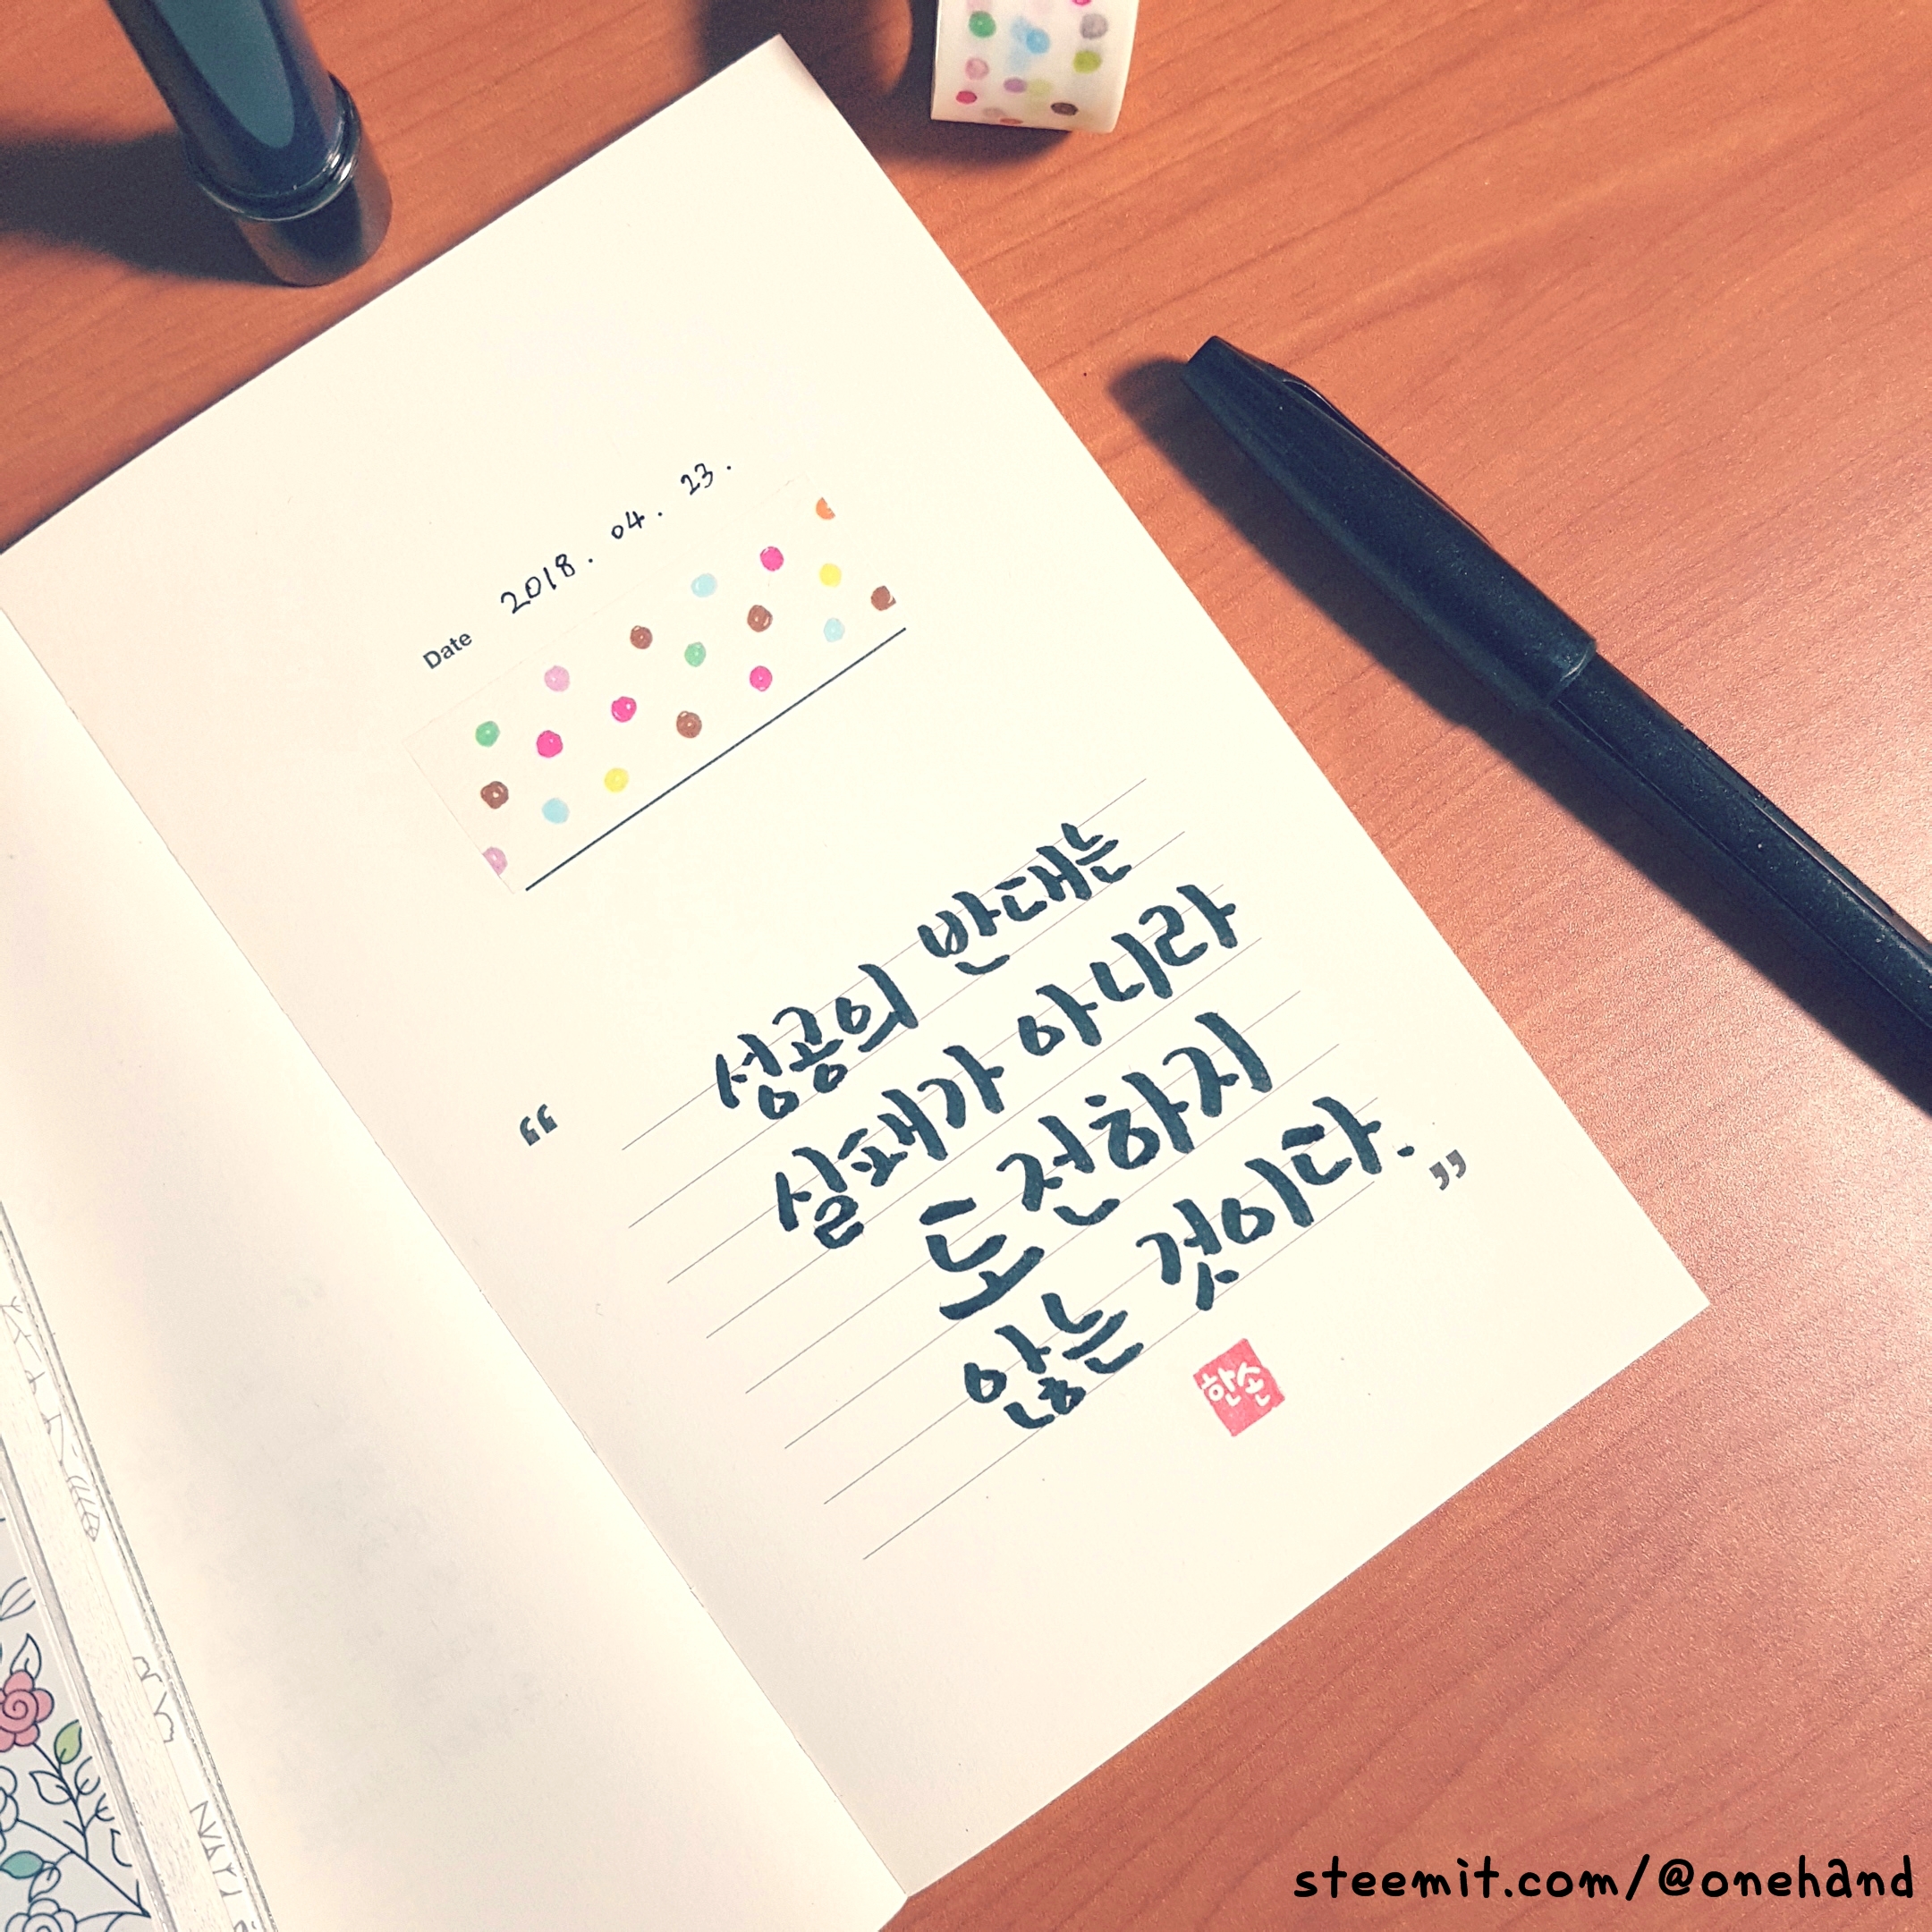 Date 2018. 04. 23.
“ 성공의 반대는
실패가 아니라
도전하지
않는 것이다. ”
한손
steemit.com/@onehand